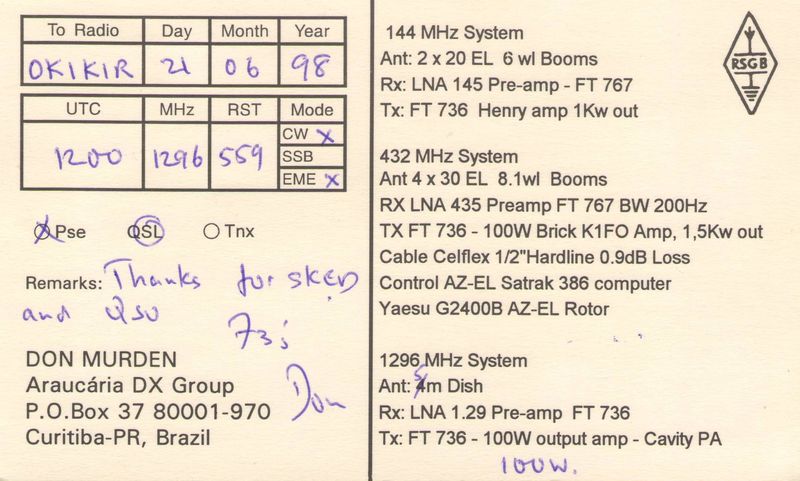 To Radio Day Month Year
OK1KIR 21 06 98
UTC MHz RST Mode
CW X
1200 1296 559 SSB
EME X
X Pse QSL Tnx
Remarks: Thanks for SKED
and QSO
73's
Don
DON MURDEN
Araucária DX Group
P.O.Box 37 80001-970
Curitiba-PR, Brazil
144 MHz System
Ant: 2 x 20 EL 6 wl Booms
Rx: LNA 145 Pre-amp - FT 767
Tx: FT 736 Henry amp 1Kw out
RSGB
432 MHz System
Ant 4 x 30 EL 8.1wl Booms
RX LNA 435 Preamp FT 767 BW 200Hz
TX FT 736 - 100W Brick K1FO Amp, 1,5Kw out
Cable Celflex 1/2"Hardline 0.9dB Loss
Control AZ-EL Satrak 386 computer
Yaesu G2400B AZ-EL Rotor
1296 MHz System
Ant: 5m Dish
Rx: LNA 1.29 Pre-amp FT 736
Tx: FT 736 - 100W output amp - Cavity PA
100W.